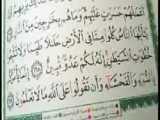 حَسَرَٰتٍ عَلَيْهِمْ وَمَا هُم بِخَٰرِجِينَ مِنَ
ٱلنَّاسُ كُلُوا۟ مِمَّا فِى ٱلْأَرْضِ حَلَٰلًا طَيِّبًا وَلَا
خُطُوَٰتِ ٱلشَّيْطَٰنِ إِنَّهُۥ لَكُمْ عَدُوٌّ مُّبِينٌ
وَٱلْفَحْشَآءِ وَأَن تَقُولُوا۟ عَلَى ٱللَّهِ مَا لَا تَعْلَمُونَ